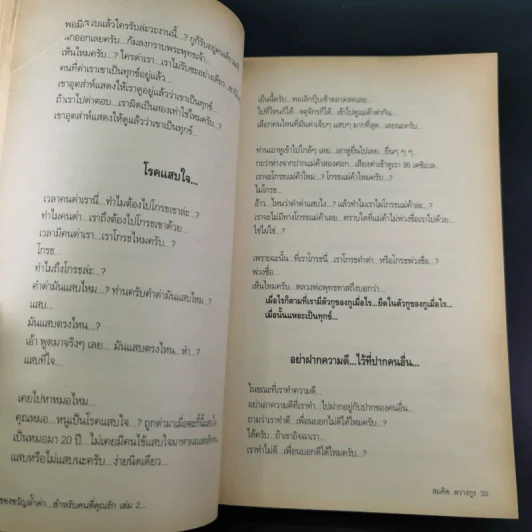 พอมีเจ็บแล้วใครรับล่ะวะงานนี้...? กูก็รับอยู่คนเดียว
นึกออกเลยครับ...ก้มลงกราบพระพุทธเจ้า...
เห็นไหมครับ...? ใครด่าเรา...เราไม่รับซะอย่างเดียว...
คนที่ด่าเราเขาเป็นทุกข์อยู่แล้ว...
เขาอุตส่าห์แสดงให้เราดูอยู่แล้วว่าเขาเป็นทุกข์...
ถ้าเราไปด่าตอบ...เรามิตเป็นสองเท่าใช่ไหมครับ...?
เขาอุตส่าห์แสดงให้ดูแล้วว่าเขาเป็นทุกข์....
โรคแสบใจ...
เวลาคนด่าเรานี่...ทำไมต้องไปโกรธเขาล่ะ...?
ทำไมคนด่า...เราถึงต้องไปโกรธเขาด้วย...
เวลามีคนด่าเรา...เราโกรธไหมครับ...?
โกรธ...
ทำไมถึงโกรธล่ะ...?
คำด่ามันแสบไหม...? ท่านครับคำด่ามันแสบไหม...?
แสบ...
มันแสบตรงไหน...?
เอ้า พูดมาจริงๆ เลย... มันแสบตรงไหน...ห๋า...?
แสบที่ใจ...
เคยไปหาหมอไหม...
คุณหมอ...หนูเป็นโรคแสบใจ ..? ถูกด่ามาเมื่อตะกี้นี้แสบ
เป็นหมอมา 20 ปี...ไม่เคยมีคนไข้แสบใจมาหาผมเลยสัก
แสบหรือไม่แสบนะครับ...ง่ายนิดเดียว...
ของขวัญล้ำค่า...สำหรับคนที่คุณรัก เล่ม 2...
เย็นนี้ครับ...พอเลิกปุ๊บเข้าตลาดสดเลย...
ไปที่ไหนก็ได้...จตุจักรก็ได้...เข้าไปดูแม่ค้าด่ากัน...
เลือกคนไหนที่มันด่าเจ็บๆ แสบๆ มากที่สุด...เลยนะครับ...
ท่านเอาหูเข้าไปใกล้ๆ เลย...เอาหูยื่นไปเลย...ยื่นๆ ๆ ๆ...
กะว่าห่างจากปากแม่ค้าสองศอก...เสียงด่าเข้าหูเรา 95 เดซิเบล...
เราจะโกรธแม่ค้าไหม...? โกรธแม่ค้าไหมครับ...?
ไม่โกรธ...
อ้าว...ไหนว่าคำด่าแสบไง...? แล้วทำไมเราไม่โกรธแม่ค้าล่ะ...?
เราจะไม่มีทางโกรธแม่ค้าเลย...ตราบใดที่แม่ค้าไม่พ่วงชื่อเราไปด้วย...
ใช่ไม่ใช่...?
เพราะฉะนั้น...ที่เราโกรธนี่...เราโกรธคำด่า...หรือโกรธพ่วงชื่อ...?
พ่วงชื่อ...
เห็นไหมครับ...หลวงพ่อพุทธทาสถึงบอกว่า...
เมื่อไรก็ตามที่เรามีตัวกูของกูเมื่อไร...ยึดในตัวกูของกูเมื่อไร...
เมื่อนั้นแหละเป็นทุกข์...
อย่าฝากความดี...ไว้ที่ปากคนอื่น...
ในขณะที่เราทำความดี...
อย่าเอาความดีที่เราทำ...ไปฝากอยู่กับปากของคนอื่น...
ถามว่าเราทำดี...เพื่อนบอกไม่ดีได้ไหมครับ...?
ได้ครับ...ถ้าเขาอิจฉาเรา...
เราทำไม่ดี...เพื่อนบอกดีได้ไหมครับ...?
สมคิด ลวางกูร 35